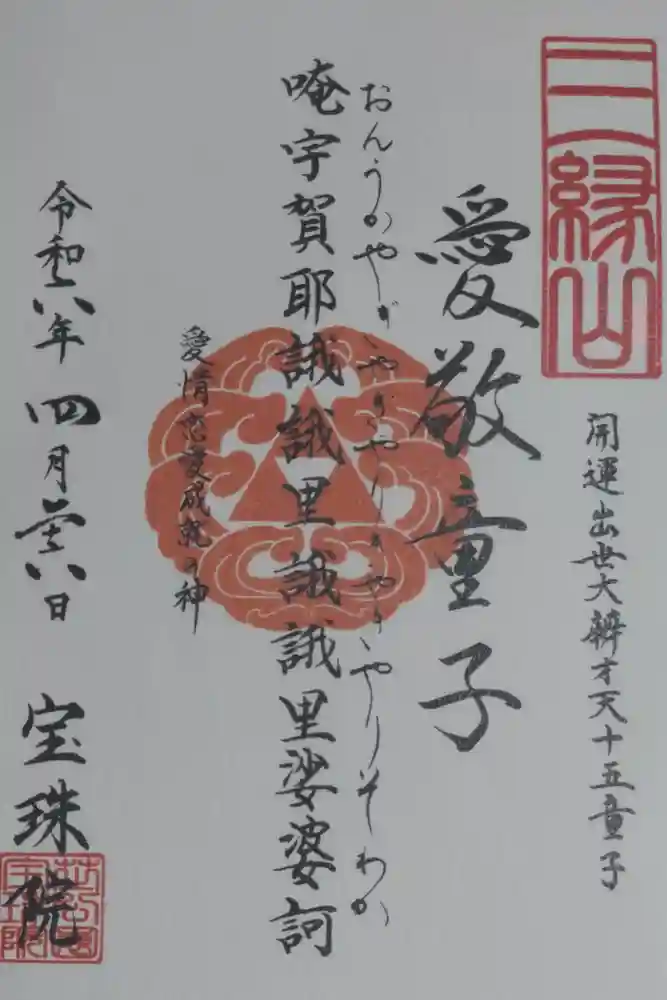 三縁山
開運出世大辨才天十五童子
愛敬童子
おんうがやじゃやがやりぎゃきゃやりそわか
唵宇賀耶誐誐里誐誐里娑婆訶
愛情恋愛成就の神
令和六年四月廿八日
宝珠院